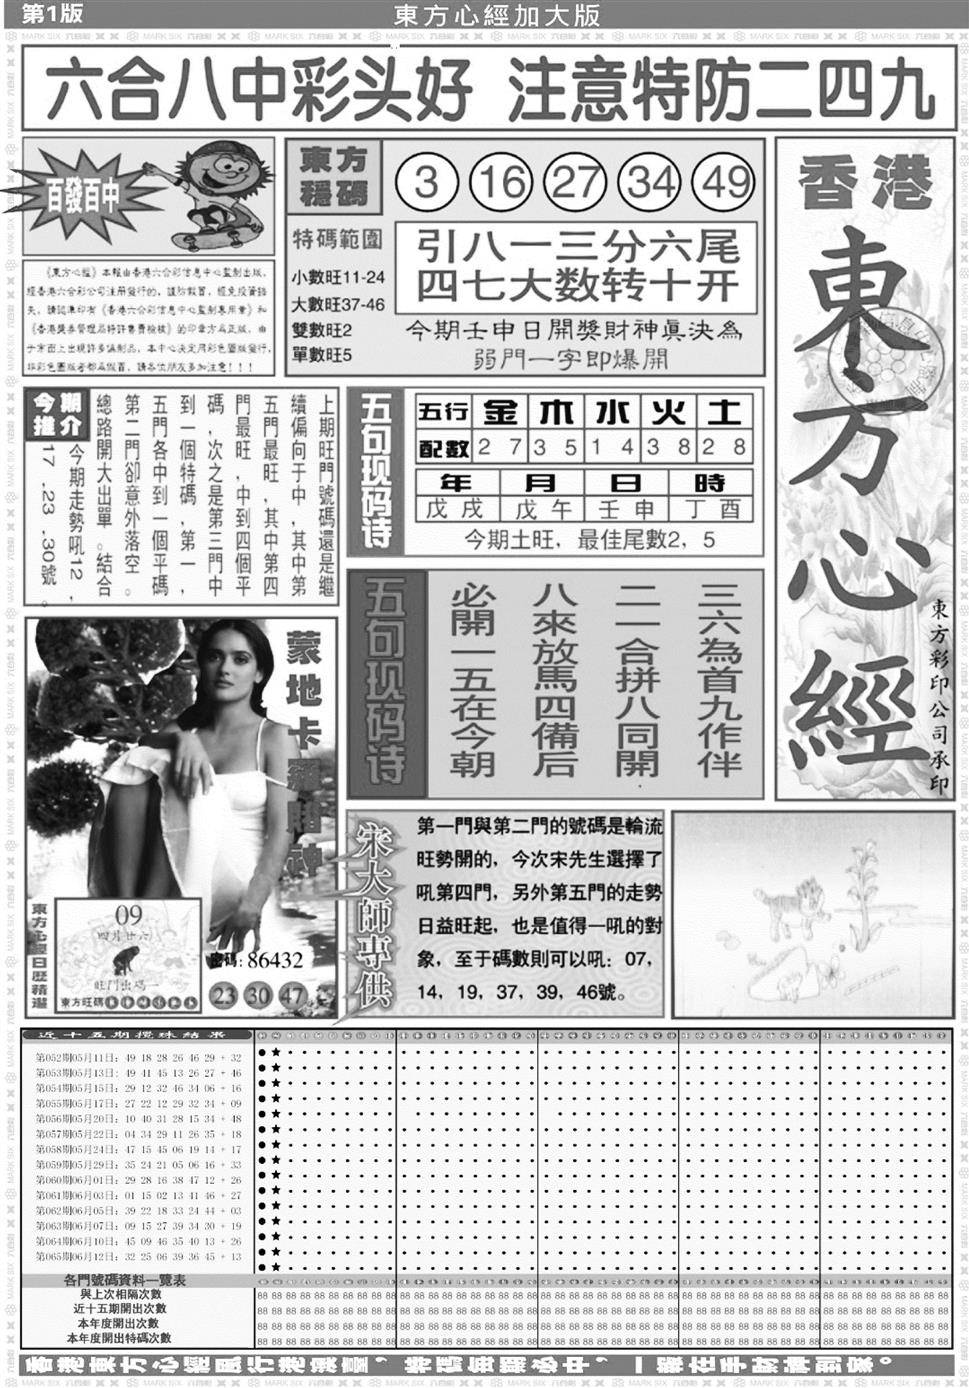 第1版
東方心經加大版
六合八中彩头好 注意特防二四九
百發百中
《東方心經》本報由香港六合彩信息中心監制出版,
東方
穩碼
3 16 27 34 49
特碼範圍
小數旺11-24
大數旺37-46
雙數旺2
單數旺5
引八一三分六尾
四七大数转十开
今期壬申日開獎財神真決為
弱門一字即爆開
香港
東方心經
東方彩印公司承印
今期
推介
上期旺門號碼還是繼
續偏向于中,其中第
五門最旺,其中第四
門最旺,中到四個平
碼,次之是第三門中
到一個特碼,第一,
五門各中到一個平碼
第二門卻意外落空。
總路開大出單。結合
今期走勢吼12,
17,23,30號。
五句现码诗
五行 金 木 水 火 土
配數 2 7 3 5 1 4 3 8 2 8
年 月 日 時
戊戌 戊午 壬申 丁酉
今期土旺，最佳尾數2，5
五句现码诗
三六為首九作伴
二一合拼八同開
八來放馬四備后
必開一五在今朝
蒙地卡羅賭神
東方心經日歷精選
09
四月廿六
旺門出碼一
東方旺碼
密碼:86432
23 30 47
宋大師專供
第一門與第二門的號碼是輪流
旺勢開的，今次宋先生選擇了
吼第四門，另外第五門的走勢
日益旺起，也是值得一吼的對
象，至于碼數則可以吼：07，
14，19，37，39，46號。
近十五期攪珠結果
第052期05月11日: 49 18 28 26 46 29 + 32
第053期05月13日: 49 41 45 13 26 27 + 46
第054期05月15日: 29 12 32 46 34 06 + 16
第055期05月17日: 27 22 12 29 32 34 + 09
第056期05月20日: 10 40 31 28 15 34 + 48
第057期05月22日: 04 34 29 11 26 35 + 18
第058期05月24日: 47 15 45 06 19 14 + 17
第059期05月29日: 35 24 21 05 06 16 + 33
第060期06月01日: 29 28 16 38 47 12 + 26
第061期06月03日: 01 15 02 13 41 46 + 27
第062期06月05日: 39 22 18 33 24 44 + 03
第063期06月07日: 09 15 27 39 34 30 + 19
第064期06月10日: 45 09 46 35 40 13 + 26
第065期06月12日: 32 25 06 39 36 45 + 13
各門號碼資料一覽表
與上次相隔次數
近十五期開出次數
本年度開出次數
本年度開出特碼次數
香港東方心經風行港澳臺，特碼每期必中，一報在手財神到家。